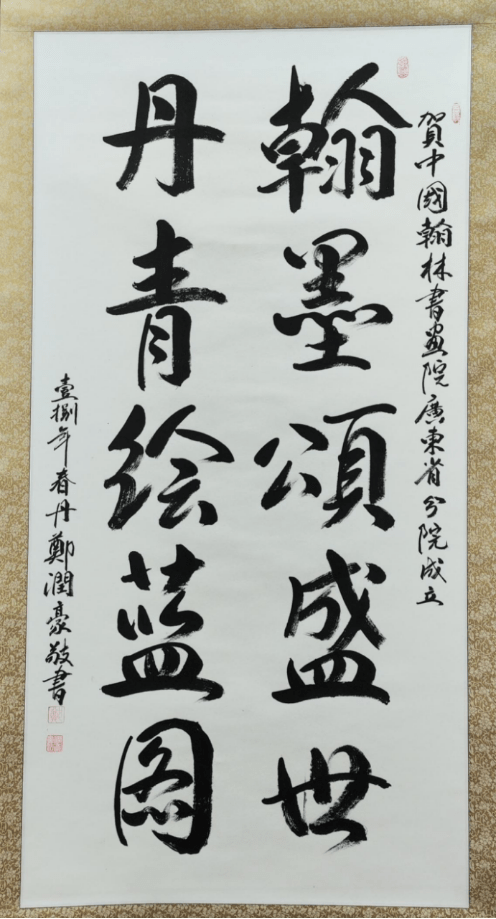 賀中國翰林書画院廣東省分院成立
翰墨頌盛世
丹青绘蓝图
壹捌年春丹鄭潤豪敬書